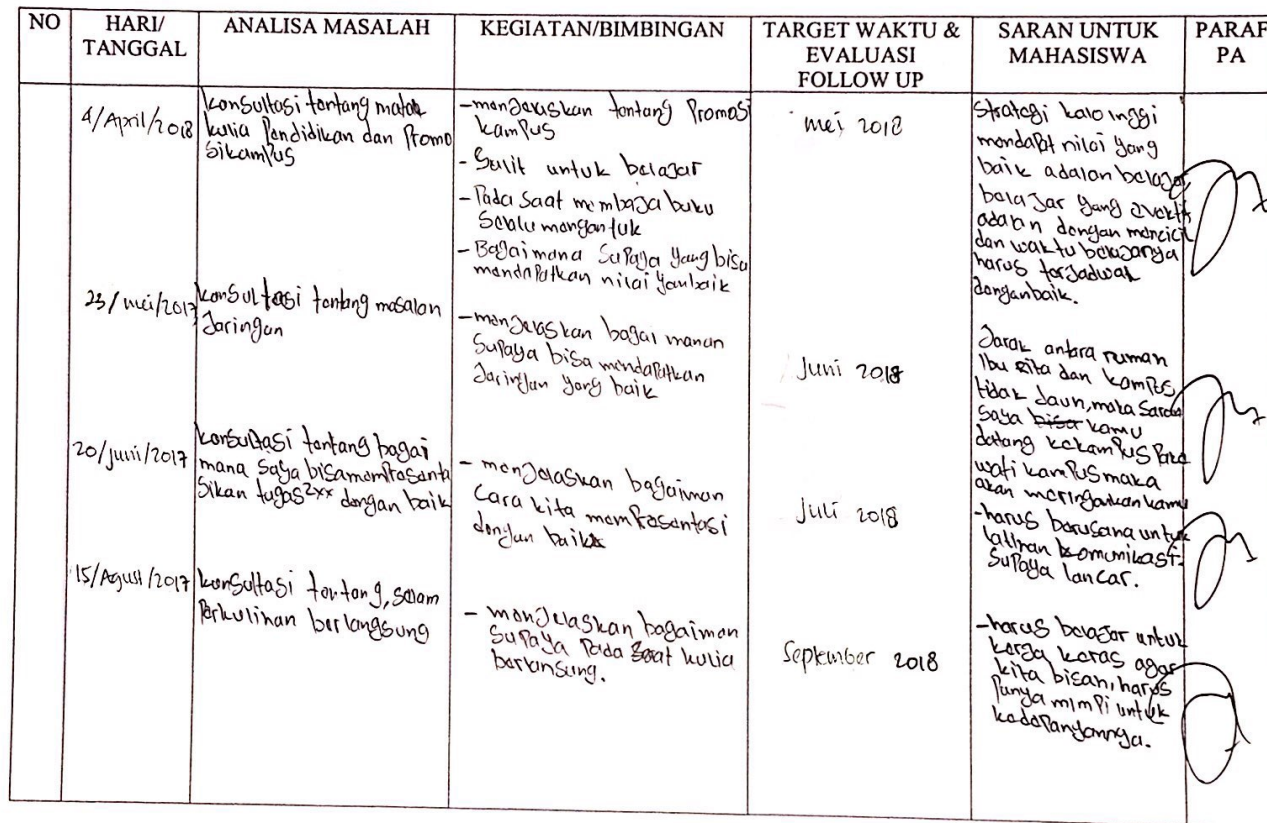 NO
HARI/
TANGGAL
ANALISA MASALAH
KEGIATAN/BIMBINGAN
TARGET WAKTU &
EVALUASI
FOLLOW UP
SARAN UNTUK
MAHASISWA
PARAF
PA
4/April/2018
konsultasi tentang matak
kulia Pendidikan dan Promo
sikampus
-menjelaskan tentang Promosi
kampus
- Sulit untuk belajar
- Pada saat membaja buku
selalu mengantuk
- Bagaimana supaya yang bisa
mendapatkan nilai yanbaik
mei 2018
Strategi kalo inggi
mendapat nilai yang
baik adalan belajar
belajar yang evektif
adalan dengan mencicil
dan waktu belajarnya
harus terjadwal
denganbaik.
23/mei/2017
konsultasi tentang masalan
Jaringan
-menjelaskan bagai manan
supaya bisa mendapatkan
Jaringan yang baik
Juni 2018
Jarak antara ruman
Ibu Rita dan kampus
tidak jaun, maka saran
saya bisa kamu
datang kekampus
wati kampus maka
akan meringankan kamu
20/juni/2017
konsultasi tentang bagai
mana saya bisamempresenta
sikan tugas2xx dengan baik
- menjelaskan bagaimana
cara kita mempresentasi
dengan baik
Juli 2018
-harus berusana untuk
latinan komunikasi
supaya lancar.
15/Agust/2017
konsultasi tentang, salam
Perkulinan berlangsung
- menjelaskan bagaiman
supaya Pada saat kulia
berlansung.
September 2018
-harus belajar untuk
kerja keras agar
kita bisan, harus
punya mimpi untuk